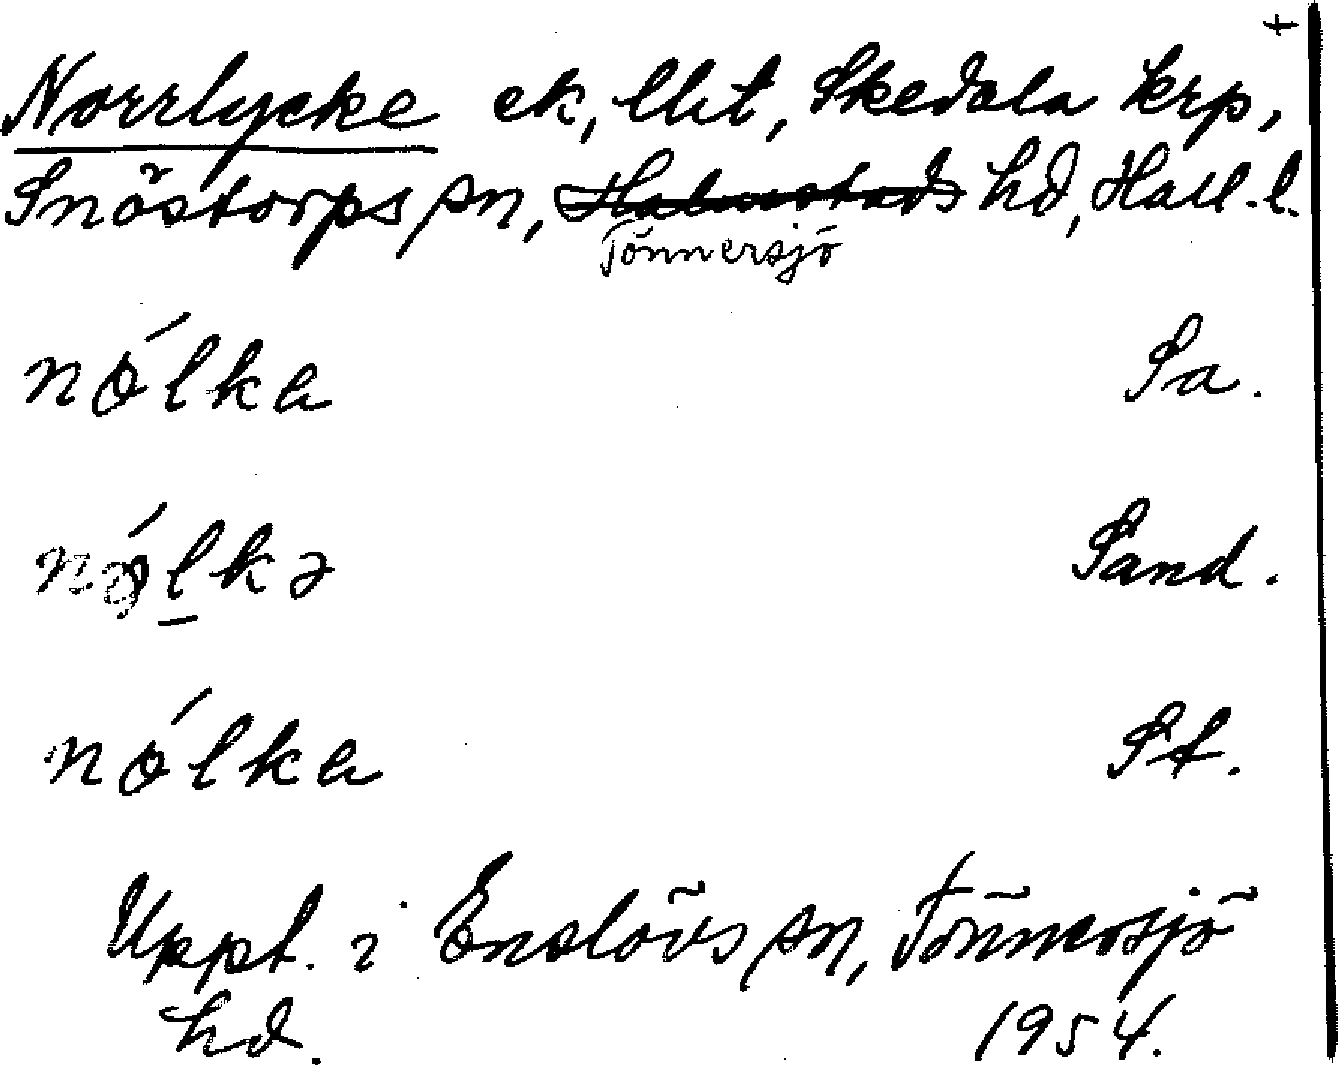 +
Norrlycke ek, Ubt, Skedala krp,
Snöstorps sn, Halmstads hd, Hall. l.
Tönnersjö
nólka Sa.
nólkə Sand.
nólka St.
Uppt. i Enslövs sn, Tönnersjö
hd. 1954.